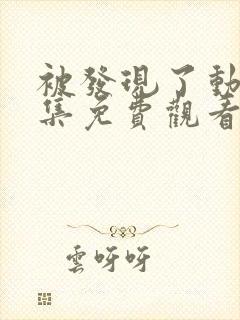 被發現了動
集免費觀看
雲呀呀